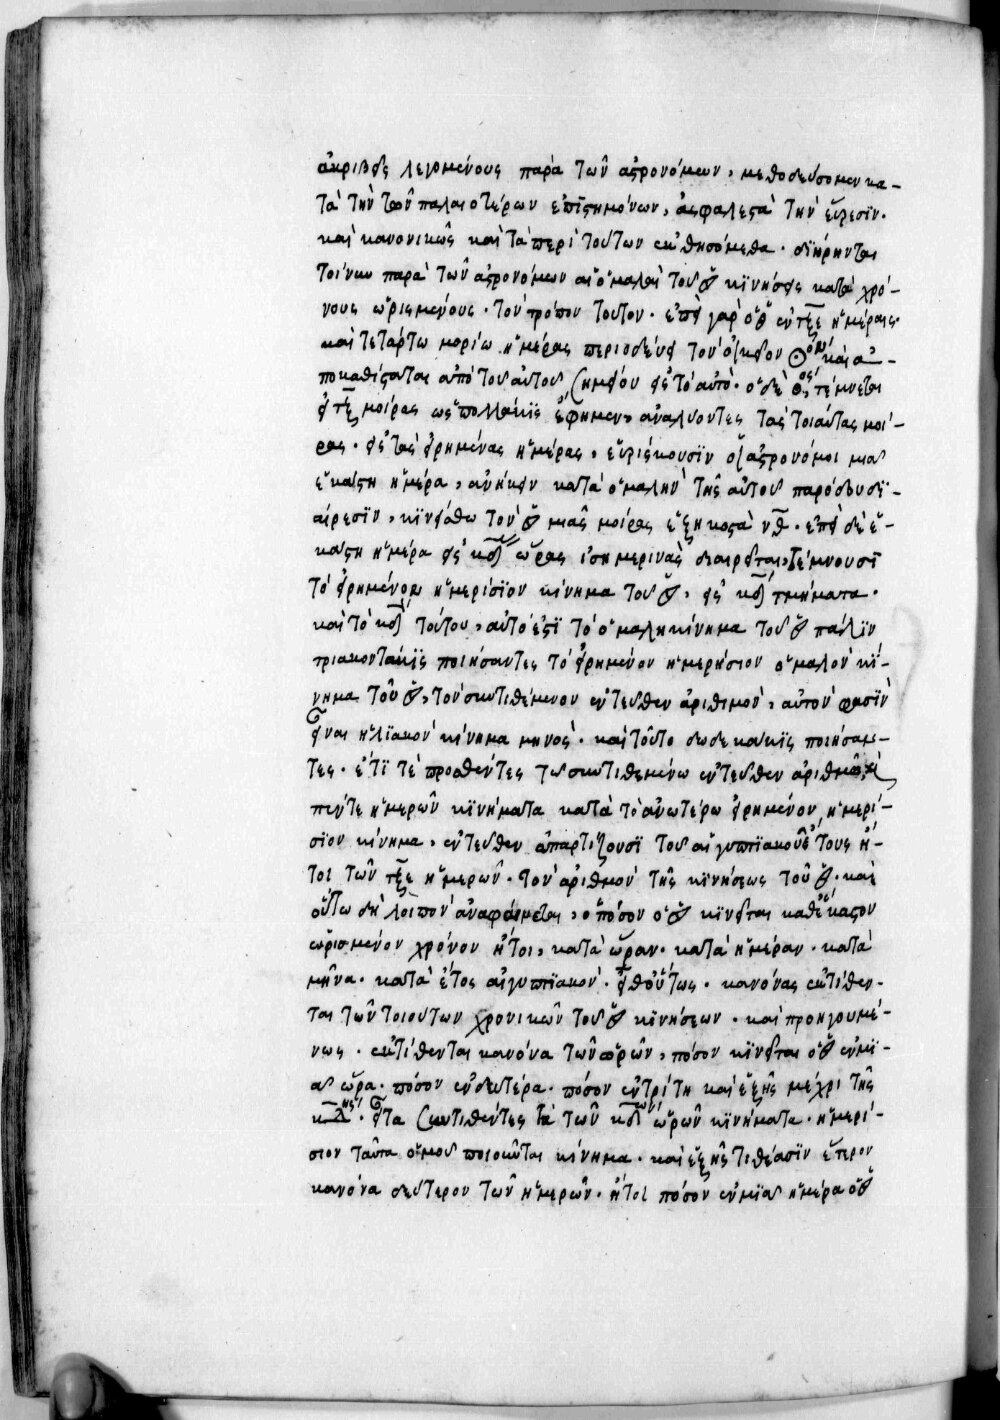 ἀκριβεῖς λεγομένους παρὰ τῶν ἀστρονόμων, μεθοδεύσομεν κα-
τὰ τὴν τῶν παλαιοτέρων ἐπιστημόνων, ἀσφαλεστὰ τὴν εὕρεσϊν·
καὶ κανονικῶς καὶ τὰ περὶ τούτων ἐκθησόμεθα· διήρηνται
τοίνυν παρὰ τῶν ἀστρονόμων αἱ ὁμαλαὶ τοῦ ☉ κϊνήσεις κατὰ χρό-
νους ὡρισμένους· τὸν τρόπον τοῦτον· ἐπεὶ γὰρ ὁ ☉ ἐν τξε ἡμέραις·
καὶ τετάρτω μορίω ἡμέρας περιοδεύει τὸν οἰκεῖον καὶ ἀ-
ποκαθίσταται ἀπὸ τοῦ αὐτοῦ σημείου εἰς τὸ αὐτό· ὁ δὲ τέμνεται
εἰς τξ μοίρας ὡς πολλάκϊς ἔφημεν, ἀναλύοντες τὰς τοιαύτας μοί-
ρας· εἰς τὰς εἰρημένας ἡμέρας, εὑρίσκουσϊν οἱ ἀστρονόμοι μιᾶ
ἑκάστη ἡμέρα, ἀνήκειν κατὰ ὁμαλὴν τῆς αὐτοῦ παρόδου δϊ-
αίρεσϊν, κϊνεῖσθω τὸν ☉ μιᾶς μοίρας ἑξηκοστὰ νθ· ἐπεὶ δὲ ἑ-
κάστη ἡμέρα εἰς κδ ὥρας ἰσημερινὰς διαιρεῖται, τέμνουσϊ
τὸ εἰρημένον ἡμερίσϊον κίνημα τοῦ ☉, εἰς κδ τμήματα·
καὶ τὸ κδ τούτου, αὐτό ἐστϊ τὸ ὁμαλὴ κίνημα τοῦ ☉ πάλϊν
τριακοντάκϊς ποιήσαντες τὸ εἰρημένον ἡμερήσιον ὁμαλὸν κί-
νημα τοῦ ☉, τὸν συντιθέμενον ἐντεῦθεν ἀριθμὸν, αὐτὸν φασϊν
εἶναι ἡλϊακὸν κίνημα μηνὸς· καὶ τοῦτο δωδεκάκϊς ποιήσαν-
τες· ἔτϊ τε προσθέντες τῶ συντιθεμένω ἐντεῦθεν ἀριθμῶ, καὶ
πέντε ἡμερῶν κϊνήματα κατὰ τὸ ἀνωτέρω εἰρημένον ἡμερί-
σϊον κίνημα, ἐντεῦθεν ἀπαρτίζουσϊ τοῦ αἰγυπτϊακοῦ ἔτους ἤ-
τοι τῶν τξε ἡμερῶν· τὸν ἀριθμὸν τῆς κϊνήσεως τοῦ ☉· καὶ
οὕτω δὴ λοιπὸν ἀναφαίνεται, ὁπόσον ὁ ☉ κϊνεῖται καθ' ἕκαστον
ὡρισμένον χρόνον ἤτοι, κατὰ ὥραν· κατὰ ἡμέραν· κατὰ
μῆνα· κατὰ ἔτος αἰγυπτϊακόν· εἶθ' οὕτως· κανόνας ἐκτίθεν-
ται τῶν τοιούτων χρονικῶν τοῦ ☉ κϊνήσεων· καὶ προηγουμέ-
νως· ἐκτίθενται κανόνα τῶν ὡρῶν, πόσον κϊνεῖται ὁ ☉ ἐν μϊ-
ᾶ ὥρα· πόσον ἐν δευτέρα· πόσον ἐν τρίτη καὶ ἑξῆς μέχρι τῆς
κδης· εἶτα συντιθέντες τὰ τῶν κδ ὡρῶν κϊνήματα· ἡμερί-
σιον ταῦτα ὁμοῦ ποιοῦνται κίνημα· καὶ ἑξῆς τιθέασϊν ἕτερον
κανόνα δεύτερον τῶν ἡμερῶν· ἤτοι πόσον ἐν μϊᾶ ἡμέρα ὁ ☉